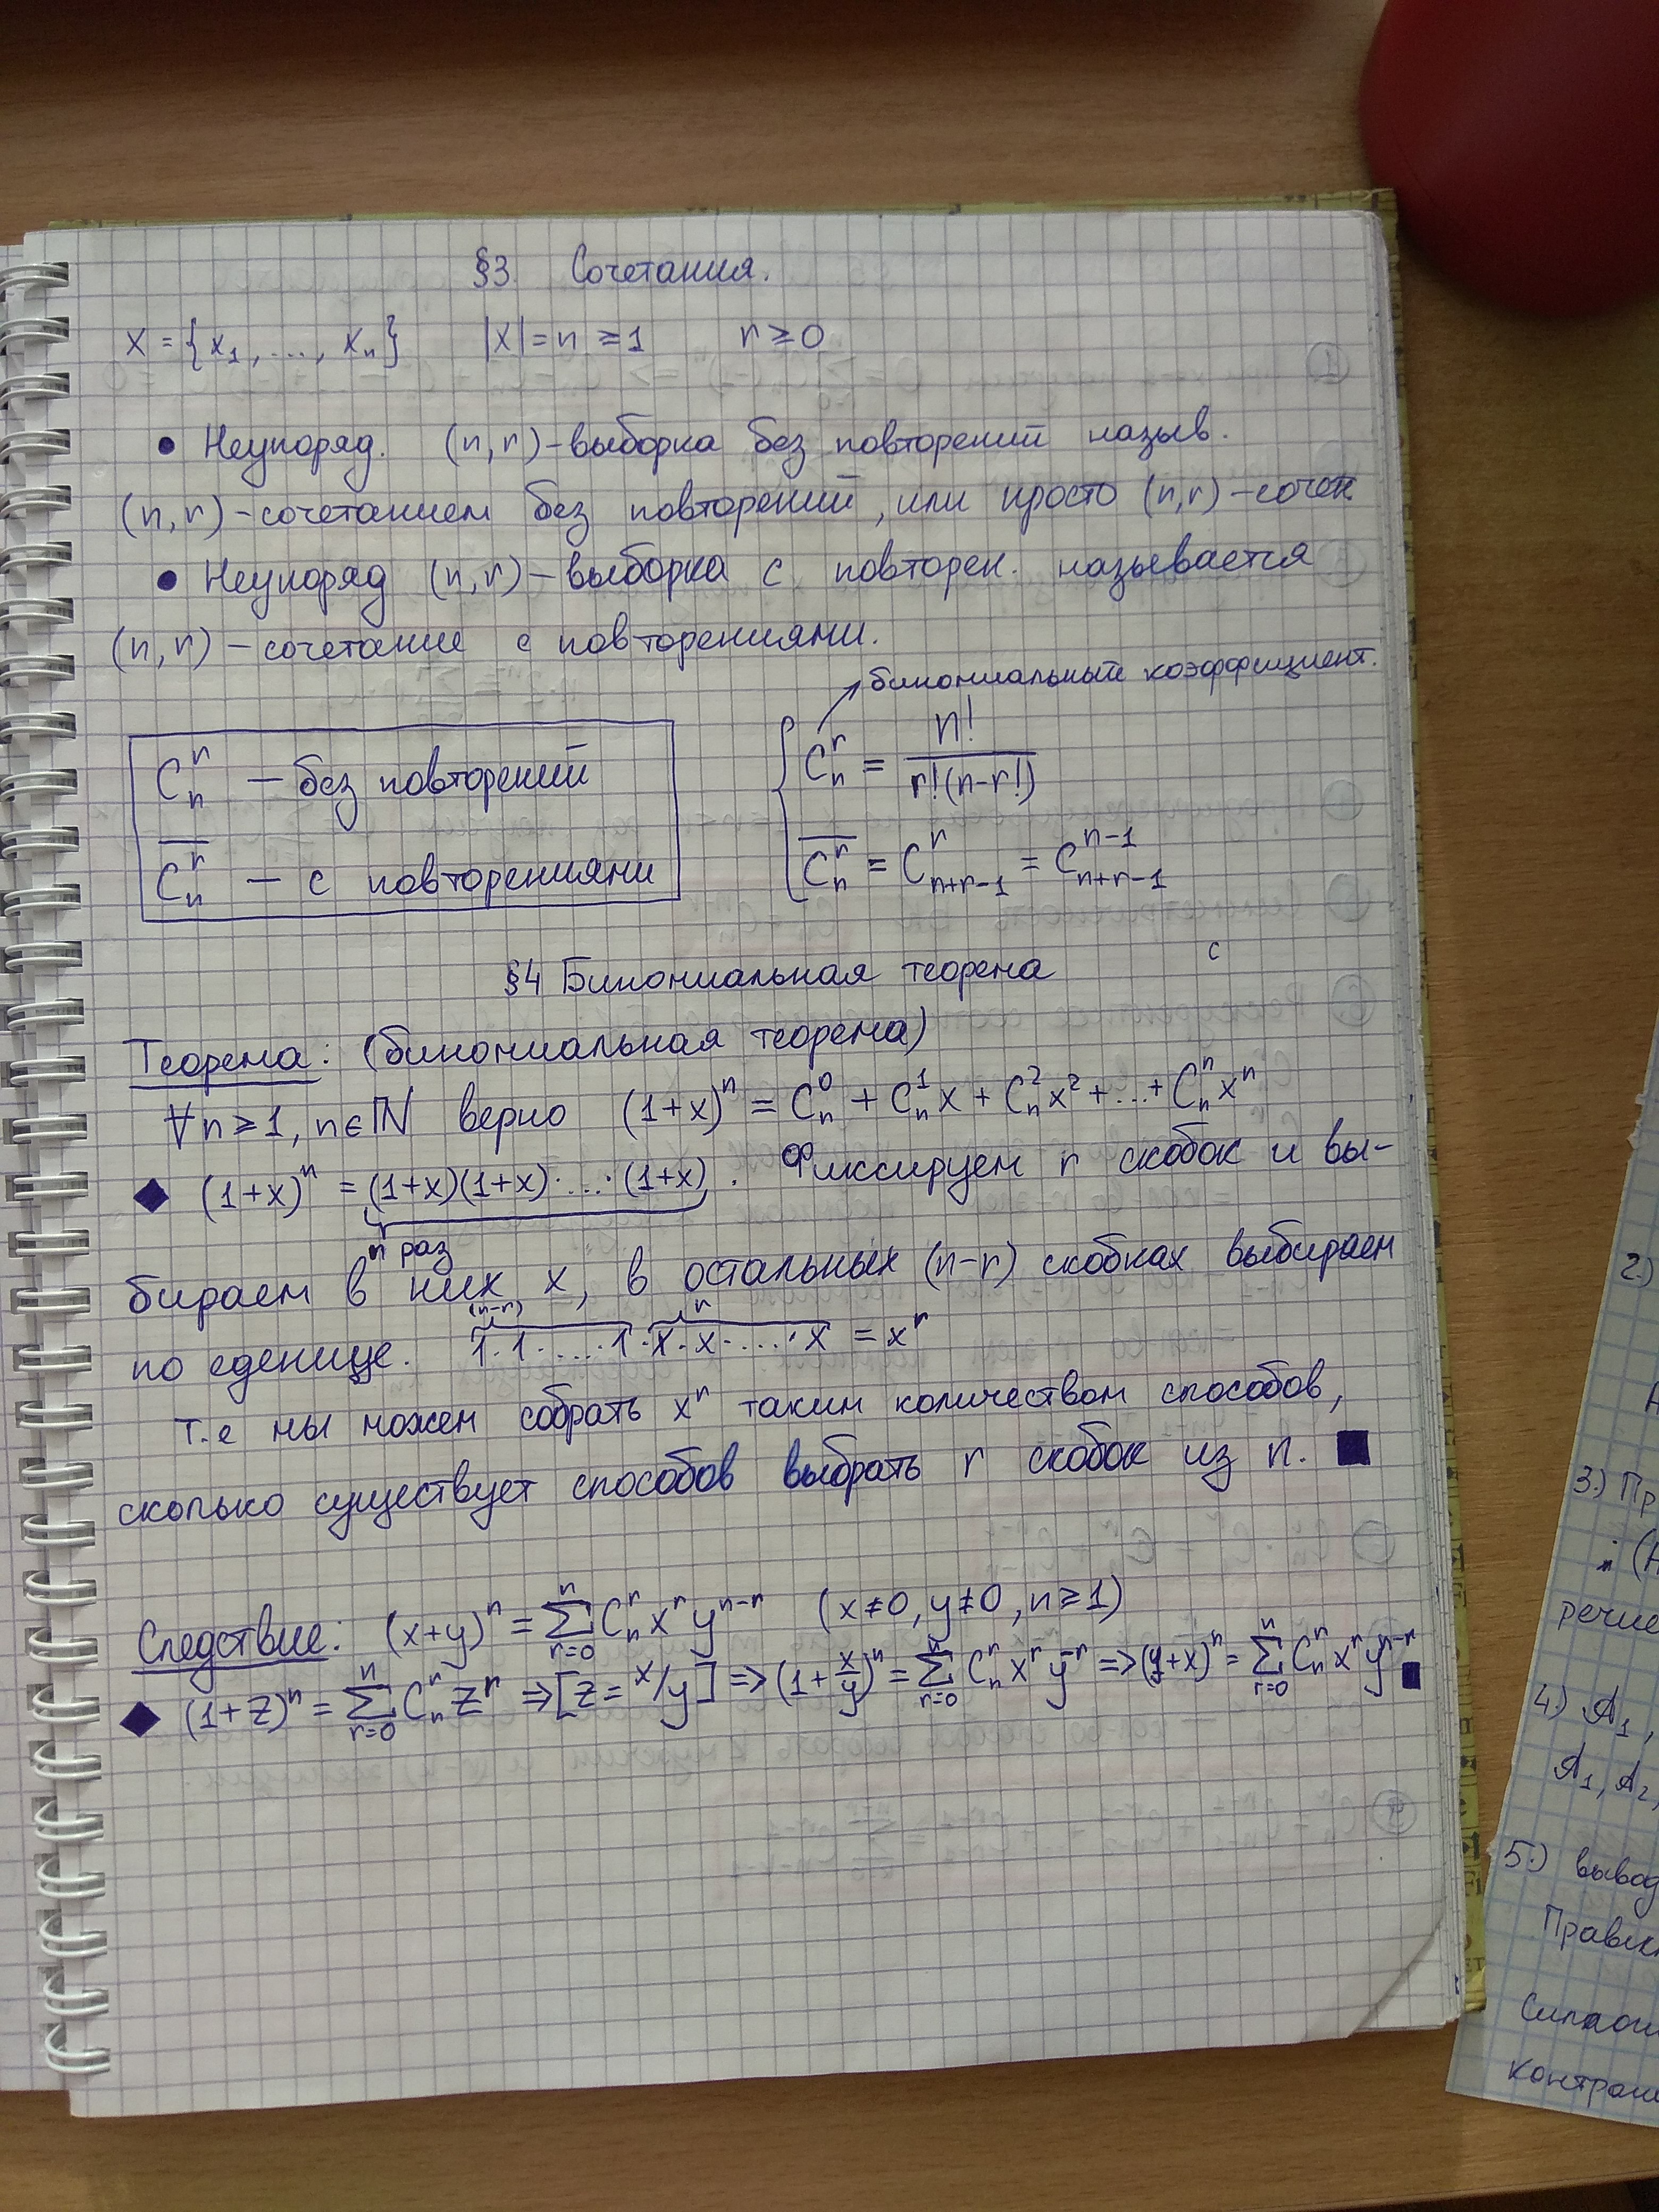 §3. Сочетания.
X = {x₁, ..., xₙ} |X| = n ≥ 1 r ≥ 0
• Неупоряд. (n, r)-выборка без повторений назыв.
(n, r)-сочетанием без повторений, или просто (n, r)-сочет.
• Неупоряд (n, r)-выборка с повторен. называется
(n, r)-сочетание с повторениями.
бинომиальный коэффициент.
C_n^r – без повторений
C_n^r = n! / r!(n-r!)
\overline{C_n^r} – с повторениями
\overline{C_n^r} = C_{n+r-1}^r = C_{n+r-1}^{n-1}
с
§4 Биномиальная теорема
Теорема: (биномиальная теорема)
∀n ≥ 1, n ∈ ℕ верно (1+x)^n = C_n^0 + C_n^1 x + C_n^2 x^2 + ... + C_n^n x^n
◆ (1+x)^n = (1+x)(1+x)·...·(1+x). Фиксируем r скобок и вы-
n раз
бираем в них x, в остальных (n-r) скобках выбираем
(n-r) r
по еденице. 1·1·...·1·x·x·...·x = x^r
Т.е мы можем собрать x^r таким количеством способов,
сколько существует способов выбрать r скобок из n. ■
Следствие: (x+y)^n = ∑_{r=0}^n C_n^r x^r y^{n-r} (x≠0, y≠0, n≥1)
◆ (1+z)^n = ∑_{r=0}^n C_n^r z^r ⇒ [z = x/y] ⇒ (1+x/y)^n = ∑_{r=0}^n C_n^r x^r y^{-r} ⇒ (y+x)^n = ∑_{r=0}^n C_n^r x^r y^{n-r} ■
2.)
3.) Пр
речие
4.) A₁,
A₁, A₂,
5.) вывод